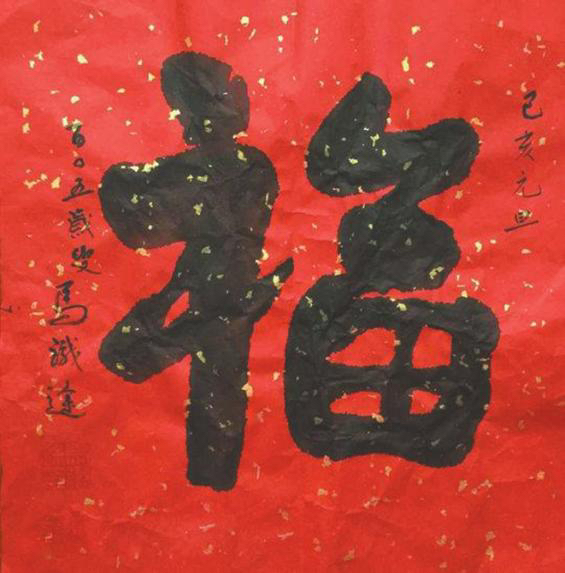 己亥元旦
福
百〇五歲叟馬識途